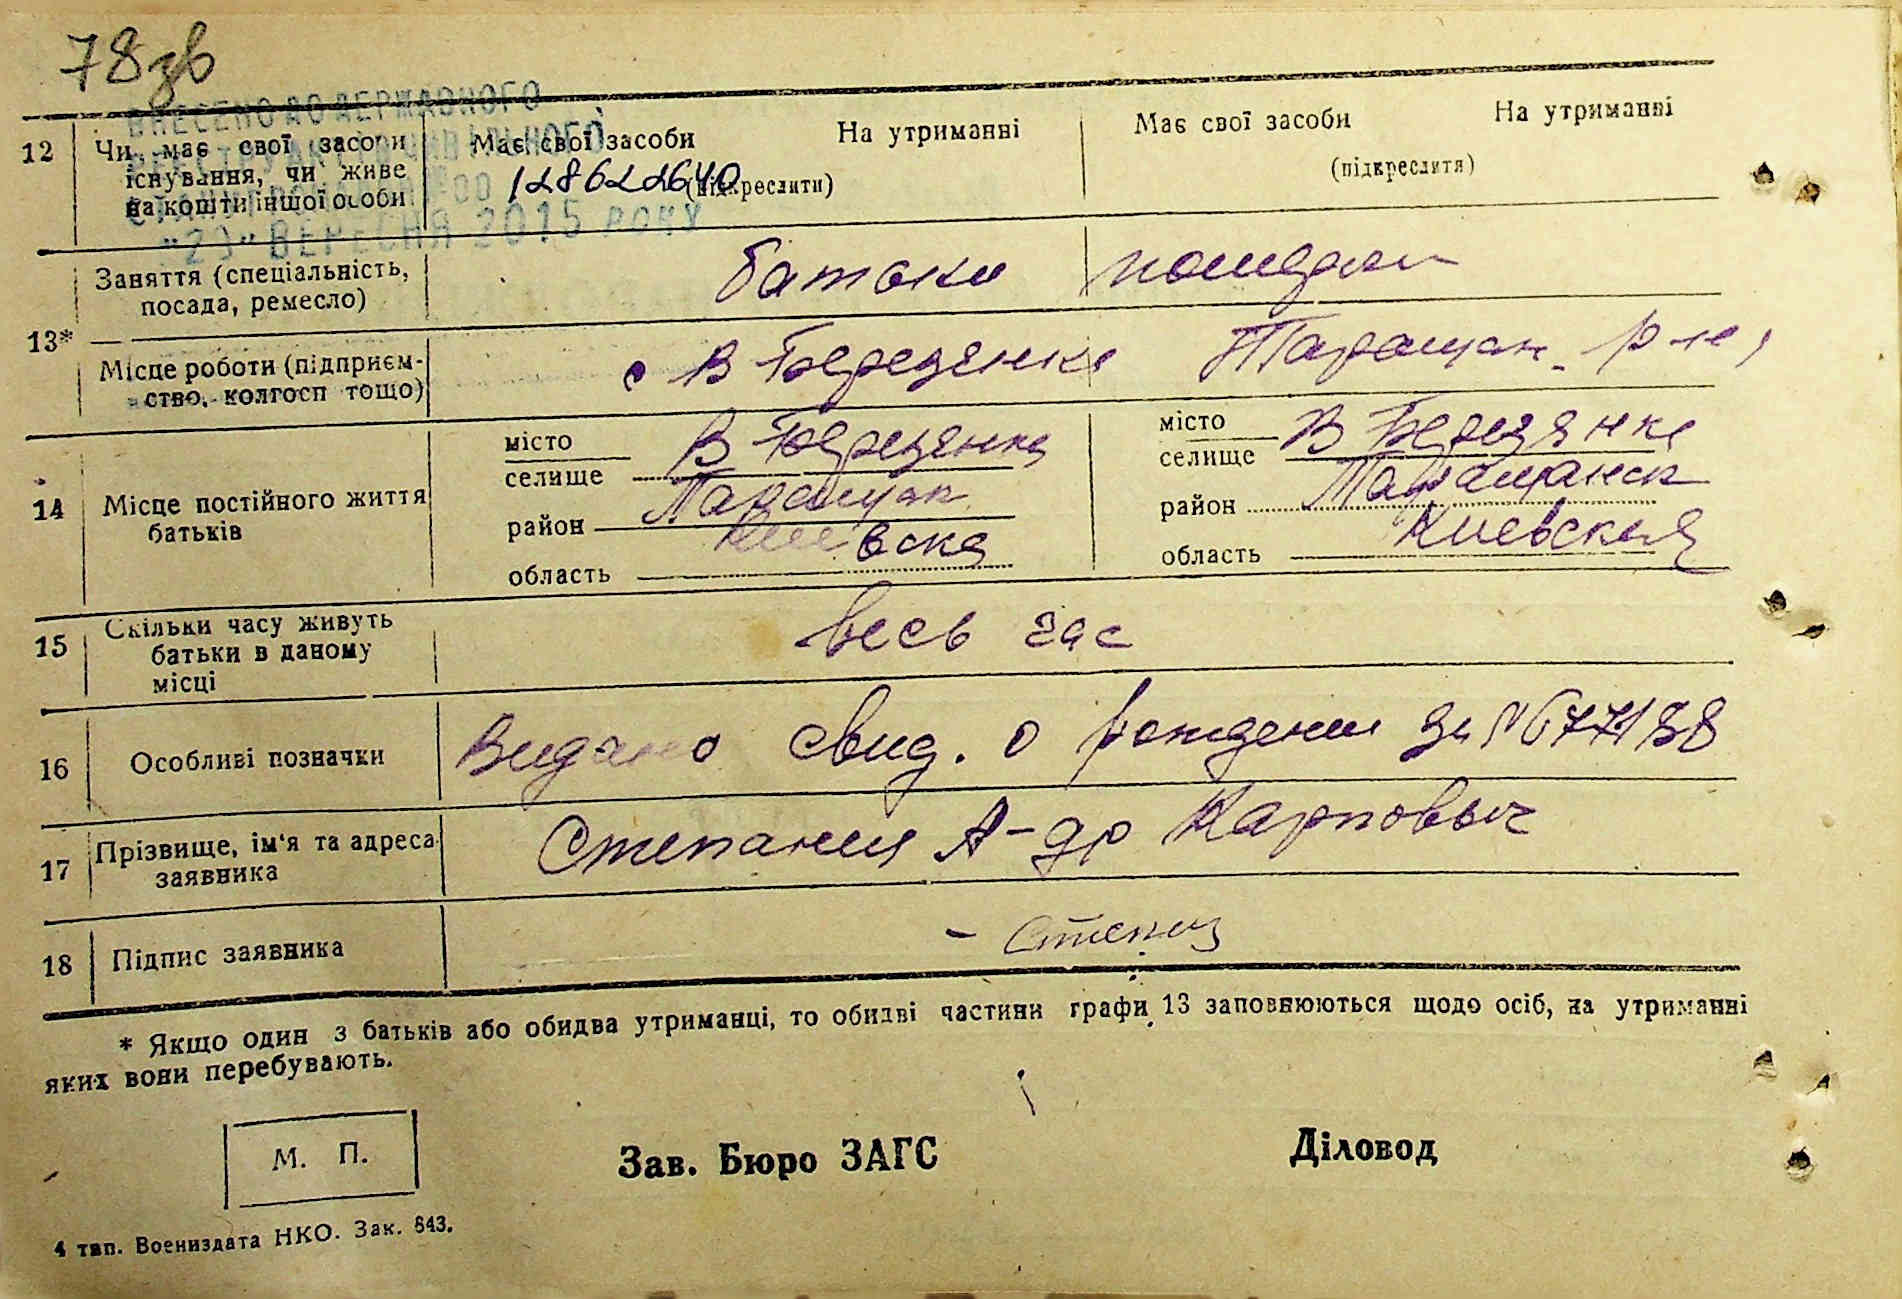 78зв
ВНЕСЕНО ДО ДЕРЖАВНОГО
ВЕРЕСНЯ 2015 РОКУ
12 Чи має свої засоби існування, чи живе на кошти іншої особи
Має свої засоби На утриманні
(підкреслити)
Має свої засоби На утриманні
(підкреслити)
13*
Заняття (спеціальність, посада, ремесло)
батьки
Місце роботи (підприємство, колгосп тощо)
с В Березянка Таращан. р-не
14 Місце постійного життя батьків
місто
селище В Березянка
район Таращан
область Киевска
місто
селище В Березянка
район Таращанск
область Киевская
15 Скільки часу живуть батьки в даному місці
весь час
16 Особливі позначки
Видано свид. о рождении за №677188
17 Прізвище, ім'я та адреса заявника
А-др Карпович
18 Підпис заявника
* Якщо один з батьків або обидва утриманці, то обидві частини графи 13 заповнюються щодо осіб, на утриманні
яких вони перебувають.
М. П.
Зав. Бюро ЗАГС
Діловод
4 тип. Воениздата НКО. Зак. 843.